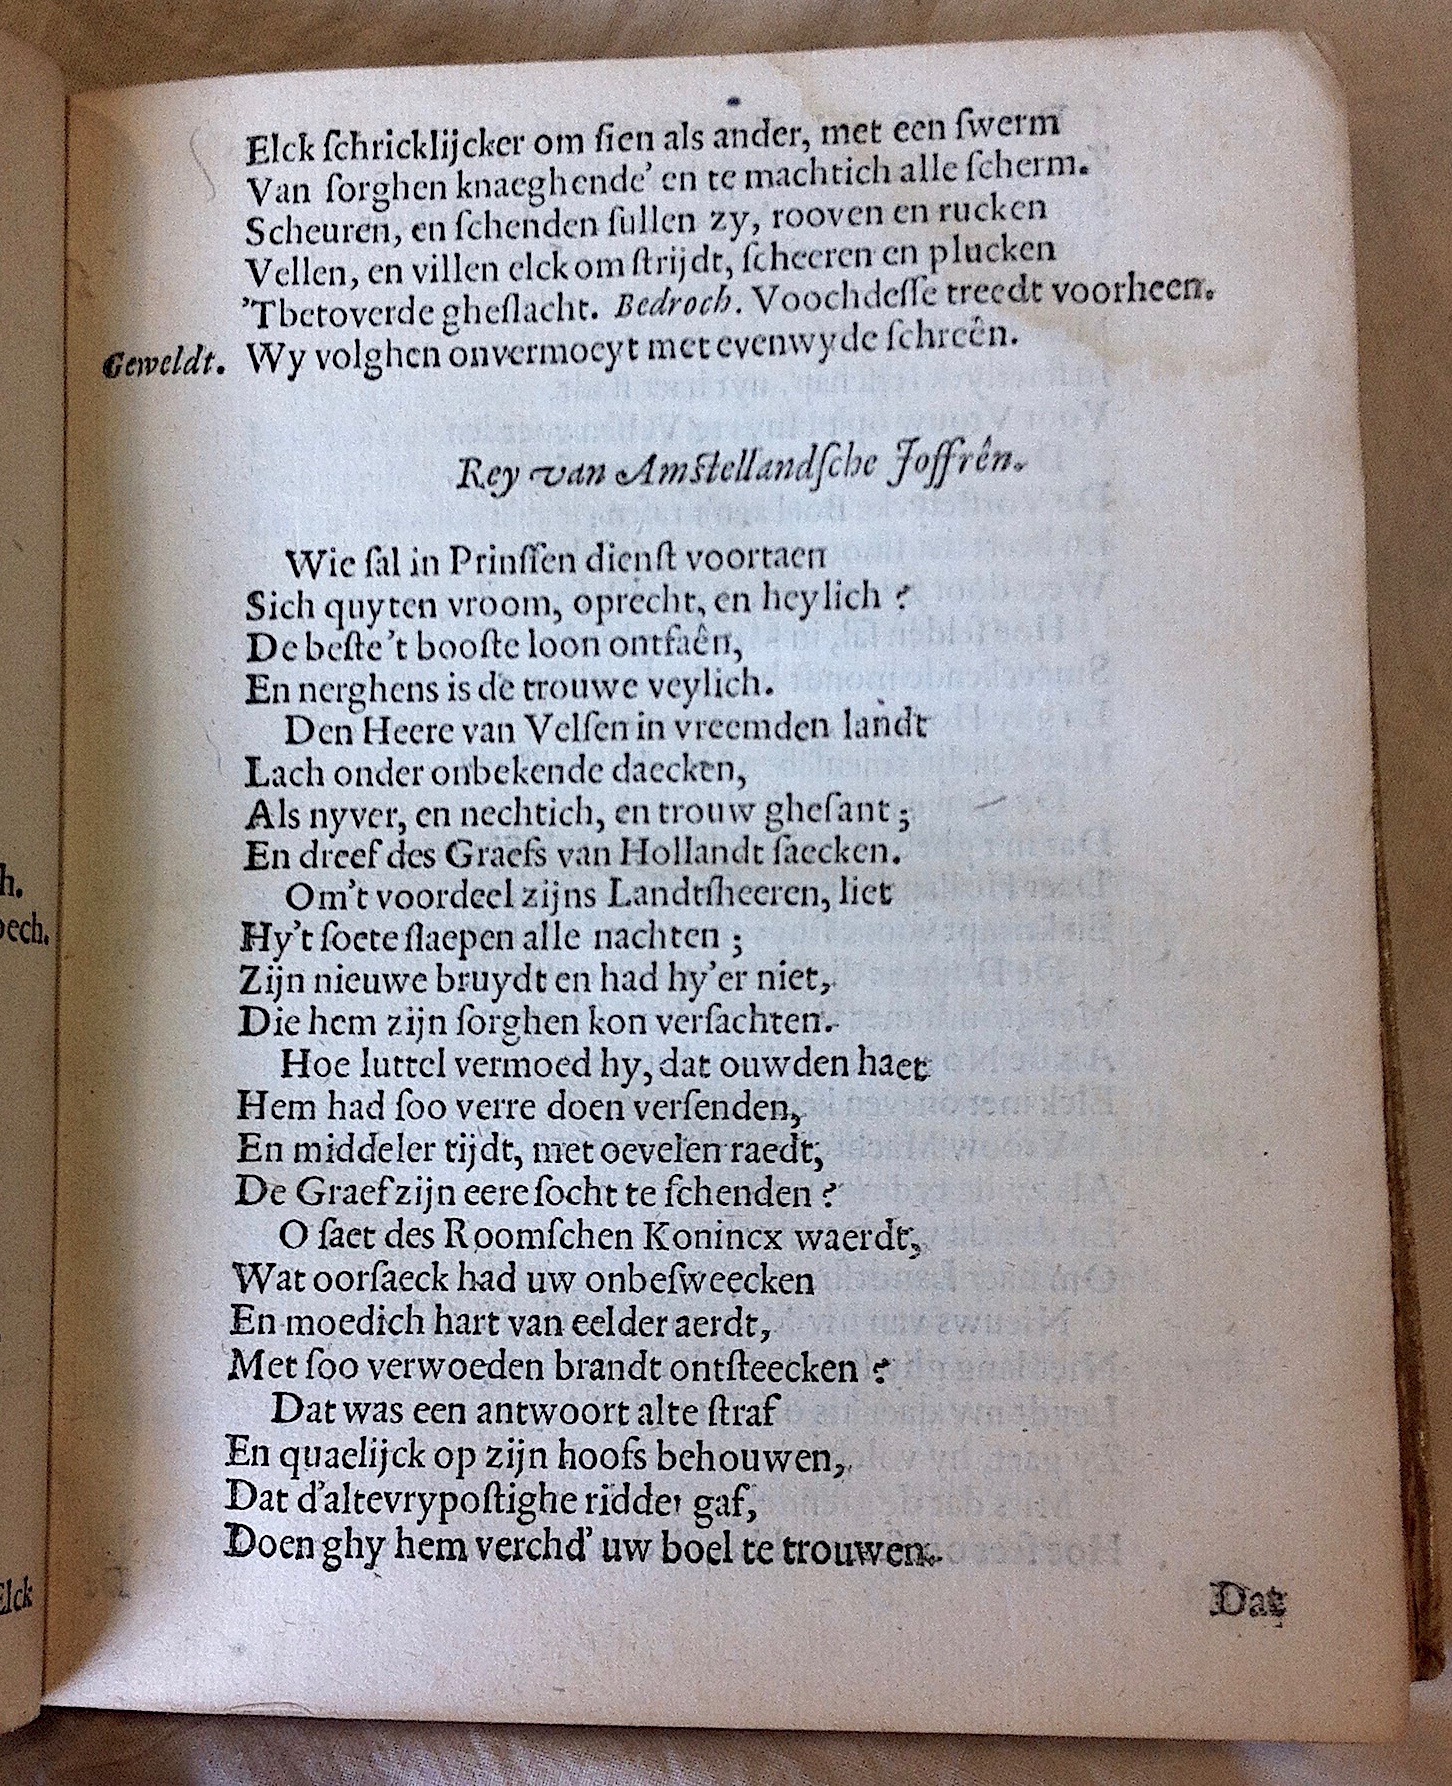 Elck ſchricklijcker om ſien als ander, met een ſwerm
Van ſorghen knaeghende' en te machtich alle ſcherm.
Scheuren, en ſchenden ſullen zy, rooven en rucken
Vellen, en villen elck om ſtrijdt, ſcheeren en plucken
'Tbetoverde gheſlacht. Bedroch. Voochdeſſe treedt voorheen.
Geweldt. Wy volghen onvermoeyt met evenwyde ſchreên.
Rey van Amstellandſche Joffrên.
Wie ſal in Prinſſen dienſt voortaen
Sich quyten vroom, oprecht, en heylich?
De beſte 't booſte loon ontfaên,
En nerghens is de trouwe veylich.
Den Heere van Velſen in vreemden landt
Lach onder onbekende daecken,
Als nyver, en nechtich, en trouw gheſant;
En dreef des Graefs van Hollandt ſaecken.
Om't voordeel zijns Landtſheeren, liet
Hy't ſoete ſlaepen alle nachten;
Zijn nieuwe bruydt en had hy'er niet,
Die hem zijn ſorghen kon verſachten.
Hoe luttel vermoed hy, dat ouwden haet
Hem had ſoo verre doen verſenden,
En middeler tijdt, met oevelen raedt,
De Graef zijn eere ſocht te ſchenden?
O ſaet des Roomſchen Konincx waerdt,
Wat oorſaeck had uw onbeſweecken
En moedich hart van eelder aerdt,
Met ſoo verwoeden brandt ontſteecken?
Dat was een antwoort alte ſtraf
En quaelijck op zijn hoofs behouwen,
Dat d'altevrypoſtighe ridder gaf,
Doen ghy hem verchd' uw boel te trouwen.
Dat
h.
ech.
Elck